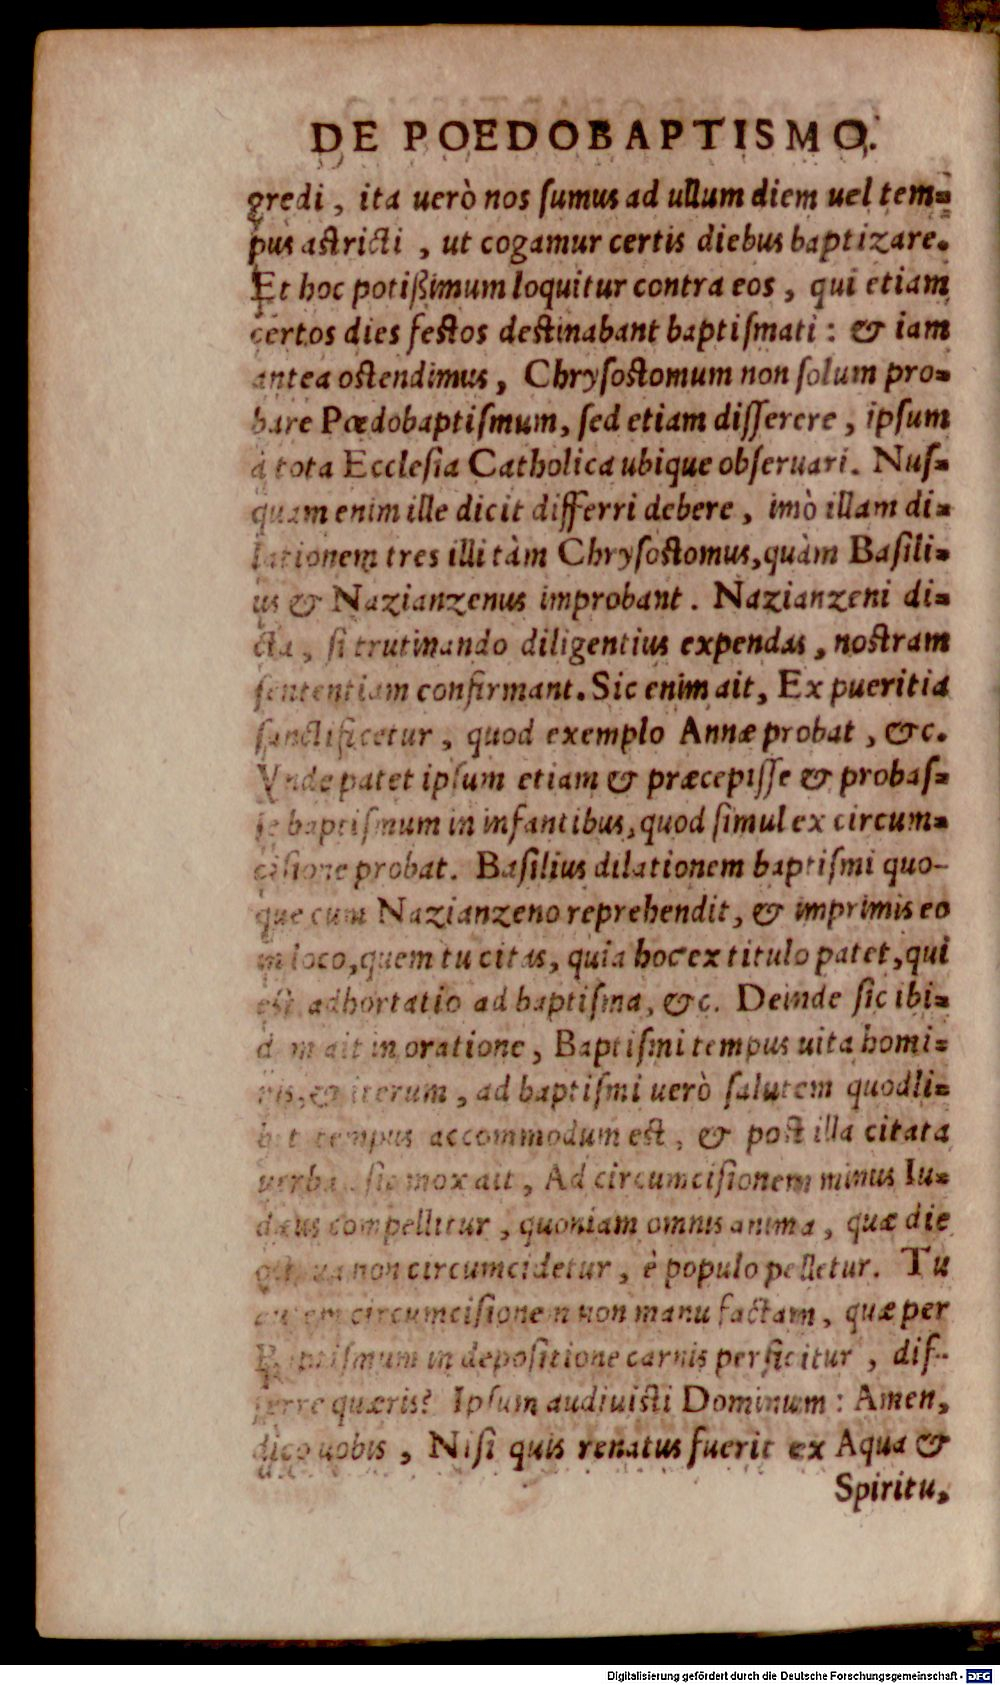 DE POEDOBAPTISMO.
gredi, ita uerò nos ſumus ad ullum diem uel tem-
pus aſtricti, ut cogamur certis diebus baptizare.
Et hoc potißimum loquitur contra eos, qui etiam
certos dies feſtos deſtinabant baptiſmati: & iam
antea oſtendimus, Chryſoſtomum non ſolum pro-
bare Pœdobaptiſmum, ſed etiam diſſerere, ipſum
à tota Eccleſia Catholica ubique obſeruari. Nuſ-
quam enim ille dicit differri debere, imò illam di-
lationem tres illi tàm Chryſoſtomus, quàm Baſili-
us & Nazianzenus improbant. Nazianzeni di-
cta, ſi trutinando diligentius expendas, noſtram
ſententiam confirmant. Sic enim ait, Ex pueritia
ſanctificetur, quod exemplo Annæ probat, &c.
Vnde patet ipſum etiam & præcepiſſe & probaſ-
ſe baptiſmum in infantibus, quod ſimul ex circum-
ciſione probat. Baſilius dilationem baptiſmi quo-
que cum Nazianzeno reprehendit, & imprimis eo
in loco, quem tu citas, quia hoc ex titulo patet, qui
eſt adhortatio ad baptiſma, &c. Deinde ſic ibi-
dem ait in oratione, Baptiſmi tempus uita homi-
nis, & iterum, ad baptiſmi uerò ſalutem quodli-
bet tempus accommodum eſt, & poſt illa citata
uerba ſic mox ait, Ad circumciſionem minus Iu-
dæus compellitur, quoniam omnis anima, quæ die
octaua non circumcidetur, è populo pelletur. Tu
autem circumciſionem non manu factam, quæ per
Baptiſmum in depoſitione carnis perficitur, dif-
ferre quæris? Ipſum audiuiſti Dominum: Amen,
dico uobis, Niſi quis renatus fuerit ex Aqua &
Spiritu,
Digitalisierung gefördert durch die Deutsche Forschungsgemeinschaft - DFG